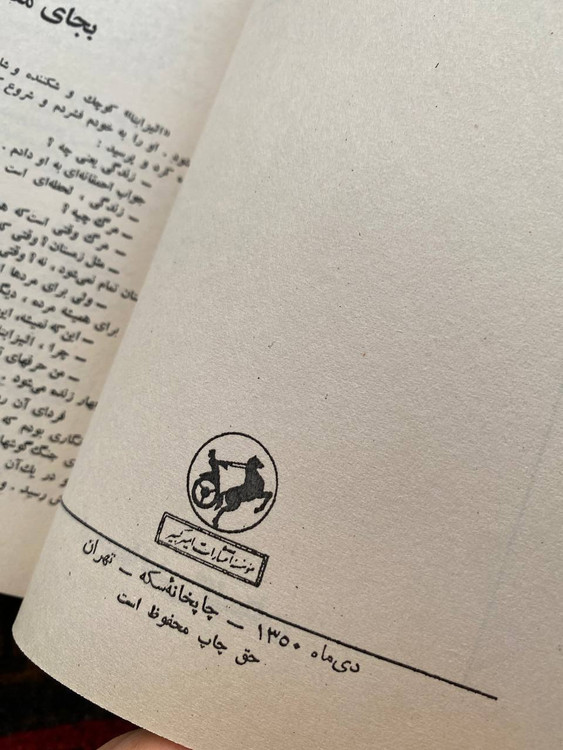 بجای
«الیزابتا» کوچک و شکننده و
. او را به خودم فشردم و شروع
کرد و پرسید :
ـ زندگی یعنی چه ؟
جواب احمقانه‌ای به او دادم .
ـ زندگی ، لحظه‌ای است
ـ مرگ چیه ؟
ـ مرگ وقتی است که
ـ مثل زمستان ؟ وقتی که
تمام نمی‌شود ، نه ؟ وقتی
ـ ولی برای مردها
برای همیشه مرده ، دیگر
ـ این که نمیشه، این
ـ چرا ، الیزابتا
ـ من حرفهای
بهار زنده می‌شود .
فردای آن
نگاری بودم که
جنگ گوشتها
و در یک آن
رسید . و
مؤسسه انتشارات امیرکبیر
دی‌ماه ۱۳۵۰ ـ چاپخانهٔ سکه ـ تهران
حق چاپ محفوظ است